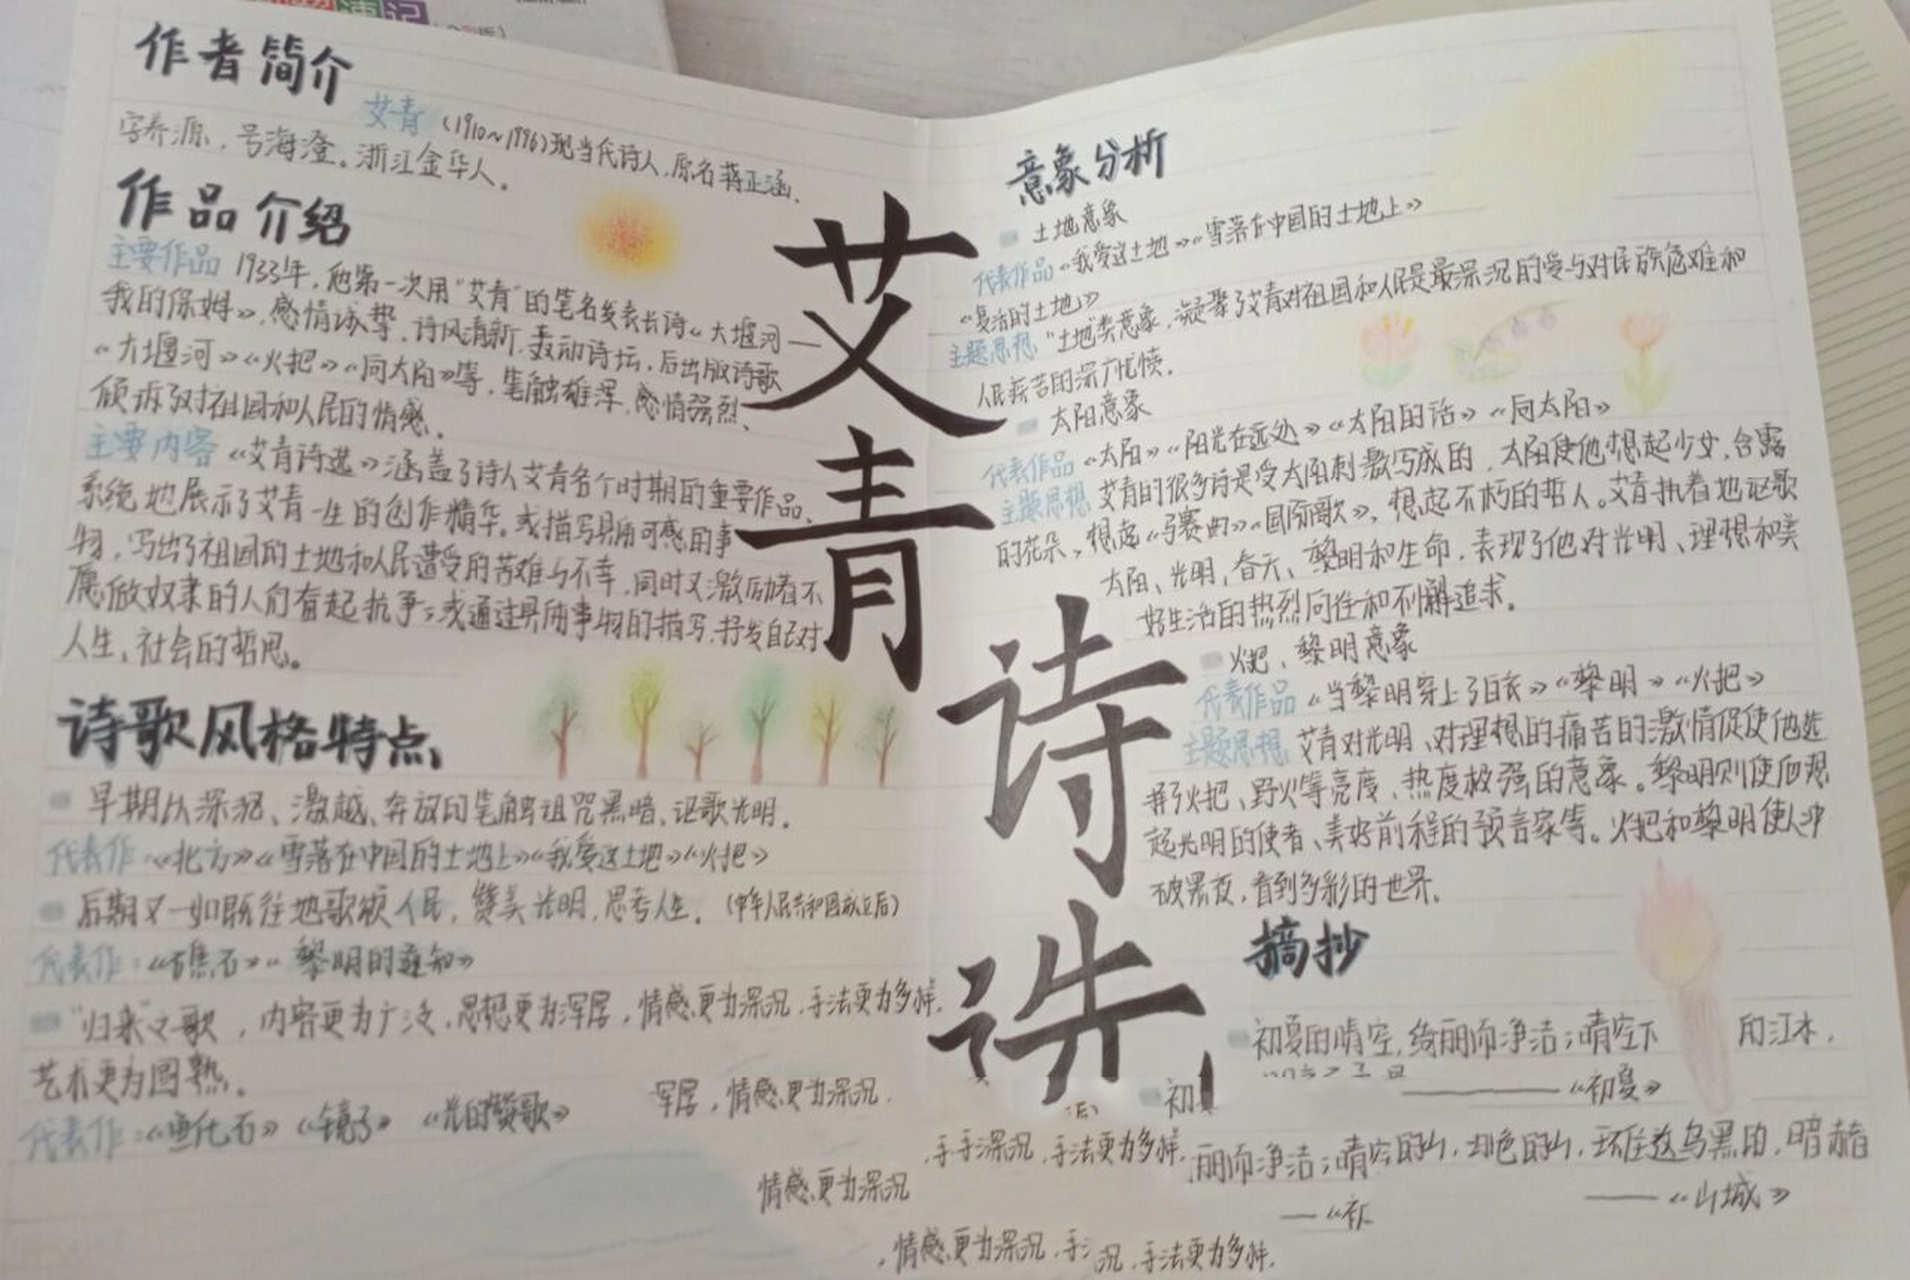 速记
作者简介
艾青(1910~1996)现当代诗人,原名蒋正涵、
字养源,号海澄。浙江金华人。
作品介绍
主要作品 1933年,他第一次用“艾青”的笔名发表长诗《大堰河——
我的保姆》,感情诚挚,诗风清新,轰动诗坛,后出版诗歌
《大堰河》《火把》《向太阳》等,笔触雄浑,感情强烈、
倾诉了对祖国和人民的情感。
主要内容《艾青诗选》涵盖了诗人艾青各个时期的重要作品、
系统地展示了艾青一生的创作精华。或描写具有可感的事
物,写出了祖国的土地和人民遭受的苦难与不幸,同时又激励着不
愿做奴隶的人们奋起抗争;或通过具有事物的描写,抒发自己对
人生、社会的哲思。
诗歌风格特点
早期以深沉、激越、奔放的笔触诅咒黑暗、讴歌光明。
代表作:《北方》《雪落在中国的土地上》《我爱这土地》《火把》
后期又一如既往地歌颂人民,赞美光明,思考人生。(中华人民共和国成立后)
代表作:《礁石》《黎明的通知》
“归来”之歌,内容更为广泛,思想更为浑厚,情感更为深沉,手法更为多样,
艺术更为圆熟。
代表作:《鱼化石》《镜子》《光的赞歌》
艾青诗选
意象分析
土地意象
代表作品《我爱这土地》《雪落在中国的土地上》
《复活的土地》
主题思想“土地”类意象,凝聚了艾青对祖国和人民是最深沉的爱与对民族危难和
人民疾苦的深广忧愤。
太阳意象
代表作品《太阳》《阳光在远处》《太阳的话》《向太阳》
主题思想 艾青的很多诗是受太阳刺激写成的,太阳使他想起少女,含露
的花朵、想起《马赛曲》《国际歌》,想起不朽的哲人。艾青执着地讴歌
太阳、光明,春天、黎明和生命,表现了他对光明、理想和美
好生活的热烈向往和不懈追求。
火把、黎明意象
代表作品《当黎明穿上了白衣》《黎明》《火把》
主题思想 艾青对光明、对理想的痛苦的激情促使他选
择了火把、野火等亮度、热度极强的意象。黎明则使他想
起光明的使者、美好前程的预言家等。火把和黎明使人冲
破黑夜,看到多彩的世界。
摘抄
初夏的晴空,绮丽而净洁;晴空下 的江水,
——《初夏》
浑厚,情感更为深沉.
初
手手深沉,手法更为多样,
丽而净洁;晴空的山,却色的山,环住这乌黑的,暗赭
情感更为深沉
——《山城》
,情感更为深沉,手
沉,手法更为多样,